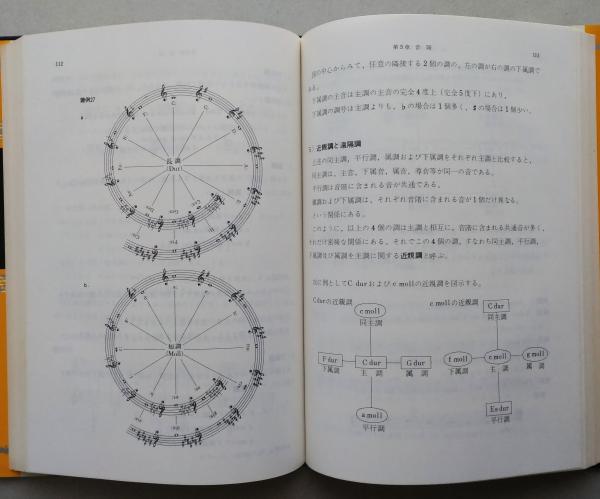 112
譜例27
a
長調
(Dur)
b
短調
(Moll)
第5章 音 階
113
圏の中心からみて、任意の隣接する2個の調の、左の調が右の調の下属調で
ある。
下属調の主音は主調の主音の完全4度上(完全5度下)にあり、
下属調の調号は主調よりも、♭の場合は1個多く、♯の場合は1個少い。
近親調と遠隔調
上述の同主調、平行調、属調および下属調をそれぞれ主調と比較すると、
同主調は、主音、下属音、属音、導音等が同一の音である。
平行調は音階に含まれる音が共通である。
属調および下属調は、それぞれ音階に含まれる音が1個だけ異なる。
という関係にある。
このように、以上の4個の調は主調と相互に、音階に含まれる共通音が多く、
それだけ密接な関係にある。それでこの4個の調、すなわち同主調、平行調、
下属調及び属調を主調に関する近親調と呼ぶ。
次に例としてC durおよびc mollの近親調を図示する。
C durの近親調
c moll
同主調
F dur
C dur
G dur
下属調
主 調
属 調
a moll
平行調
c mollの近親調
C dur
同主調
f moll
c moll
g moll
下属調
主 調
属 調
Es dur
平行調